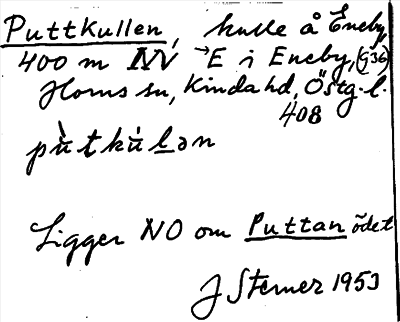 Puttkullen, kulle å Eneby
400 m NV →E i Eneby, (G36)
Horns sn, Kinda hd, Östg. l.
408
pù̀tkúlən
Ligger NO om Puttan ödet
J Sterner 1953